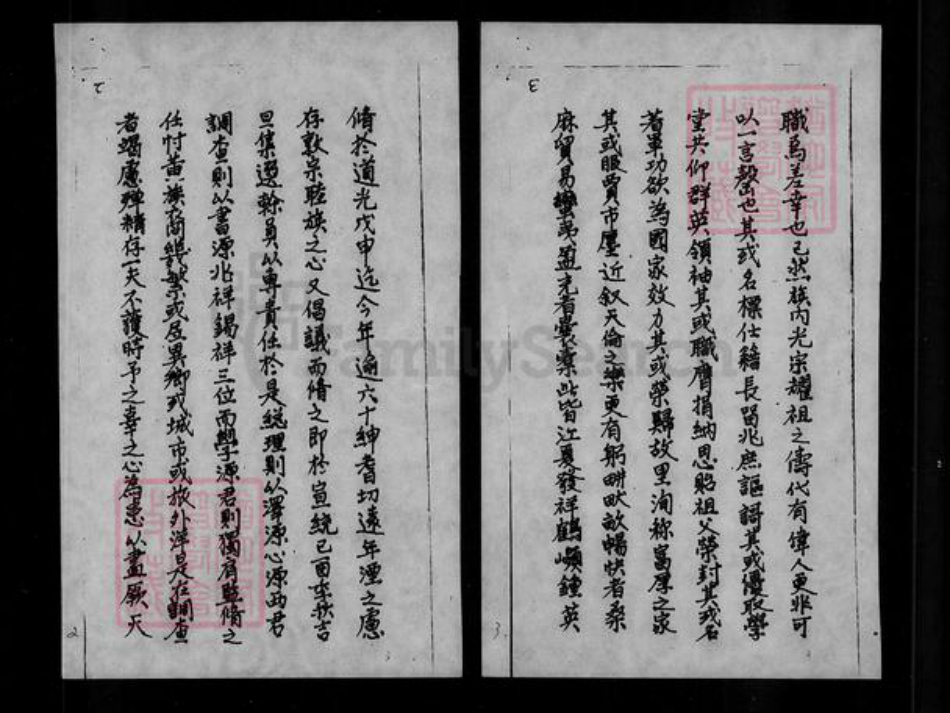 3
職爲差幸也已然族內光宗耀祖之儔代有偉人更非可
以一言罄也其或名標仕籍長留兆庶謳謌其或優取學
堂共仰群英領袖其或職膺捐納恩貽祖父榮封其或名
著軍功欲為國家效力其或榮歸故里洵称富厚之家
其或服賈市廛近叙天倫之樂更有躬畊畎畝暢快者桑
麻貿易蠻夷盈充者囊橐此皆江夏發祥鶴嶼鍾英
3.
2
脩於道光戊申迄今年逾六十紳耆切遠年湮之慮
存敦宗睦族之心又倡議而脩之即於宣統已酉季秋吉
旦集遴幹員以專責任於是総理則以澤源心源両君
調查則以書源兆祥錫祥三位而學源君則獨肩監脩之
任忖黃族啇繁或居異鄉或城市或旅外洋是在調查
者竭慮殫精存一夫不獲時予之辜之心為患以盡厥天
2
FamilySearch